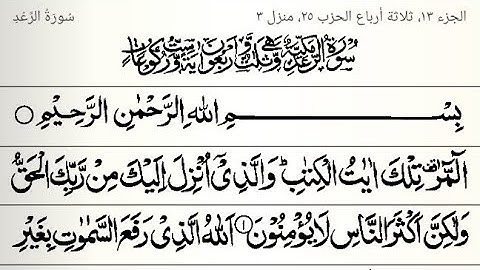 الجزء ١٣، ثلاثة أرباع الحزب ٢٥، منزل ٣ سُورَةُ الرَّعْدِ
سُوْرَةُ الرَّعْدِ مَكِّيَّةٌ وَّهِىَ ثَلٰثٌ وَّاَرْبَعُوْنَ اٰيَةً وَّسِتُّ رُكُوْعَاتٍ
بِسْــــــــــــمِ اللهِ الرَّحْمٰنِ الرَّحِيْمِ
الٓمّٓرٰ تِلْكَ اٰيٰتُ الْكِتٰبِ ؕ وَالَّذِىْۤ اُنْزِلَ اِلَيْكَ مِنْ رَّبِّكَ الْحَقُّ
وَلٰكِنَّ اَكْثَرَ النَّاسِ لَا يُؤْمِنُوْنَ ۝١ اَللهُ الَّذِىْ رَفَعَ السَّمٰوٰتِ بِغَيْرِ